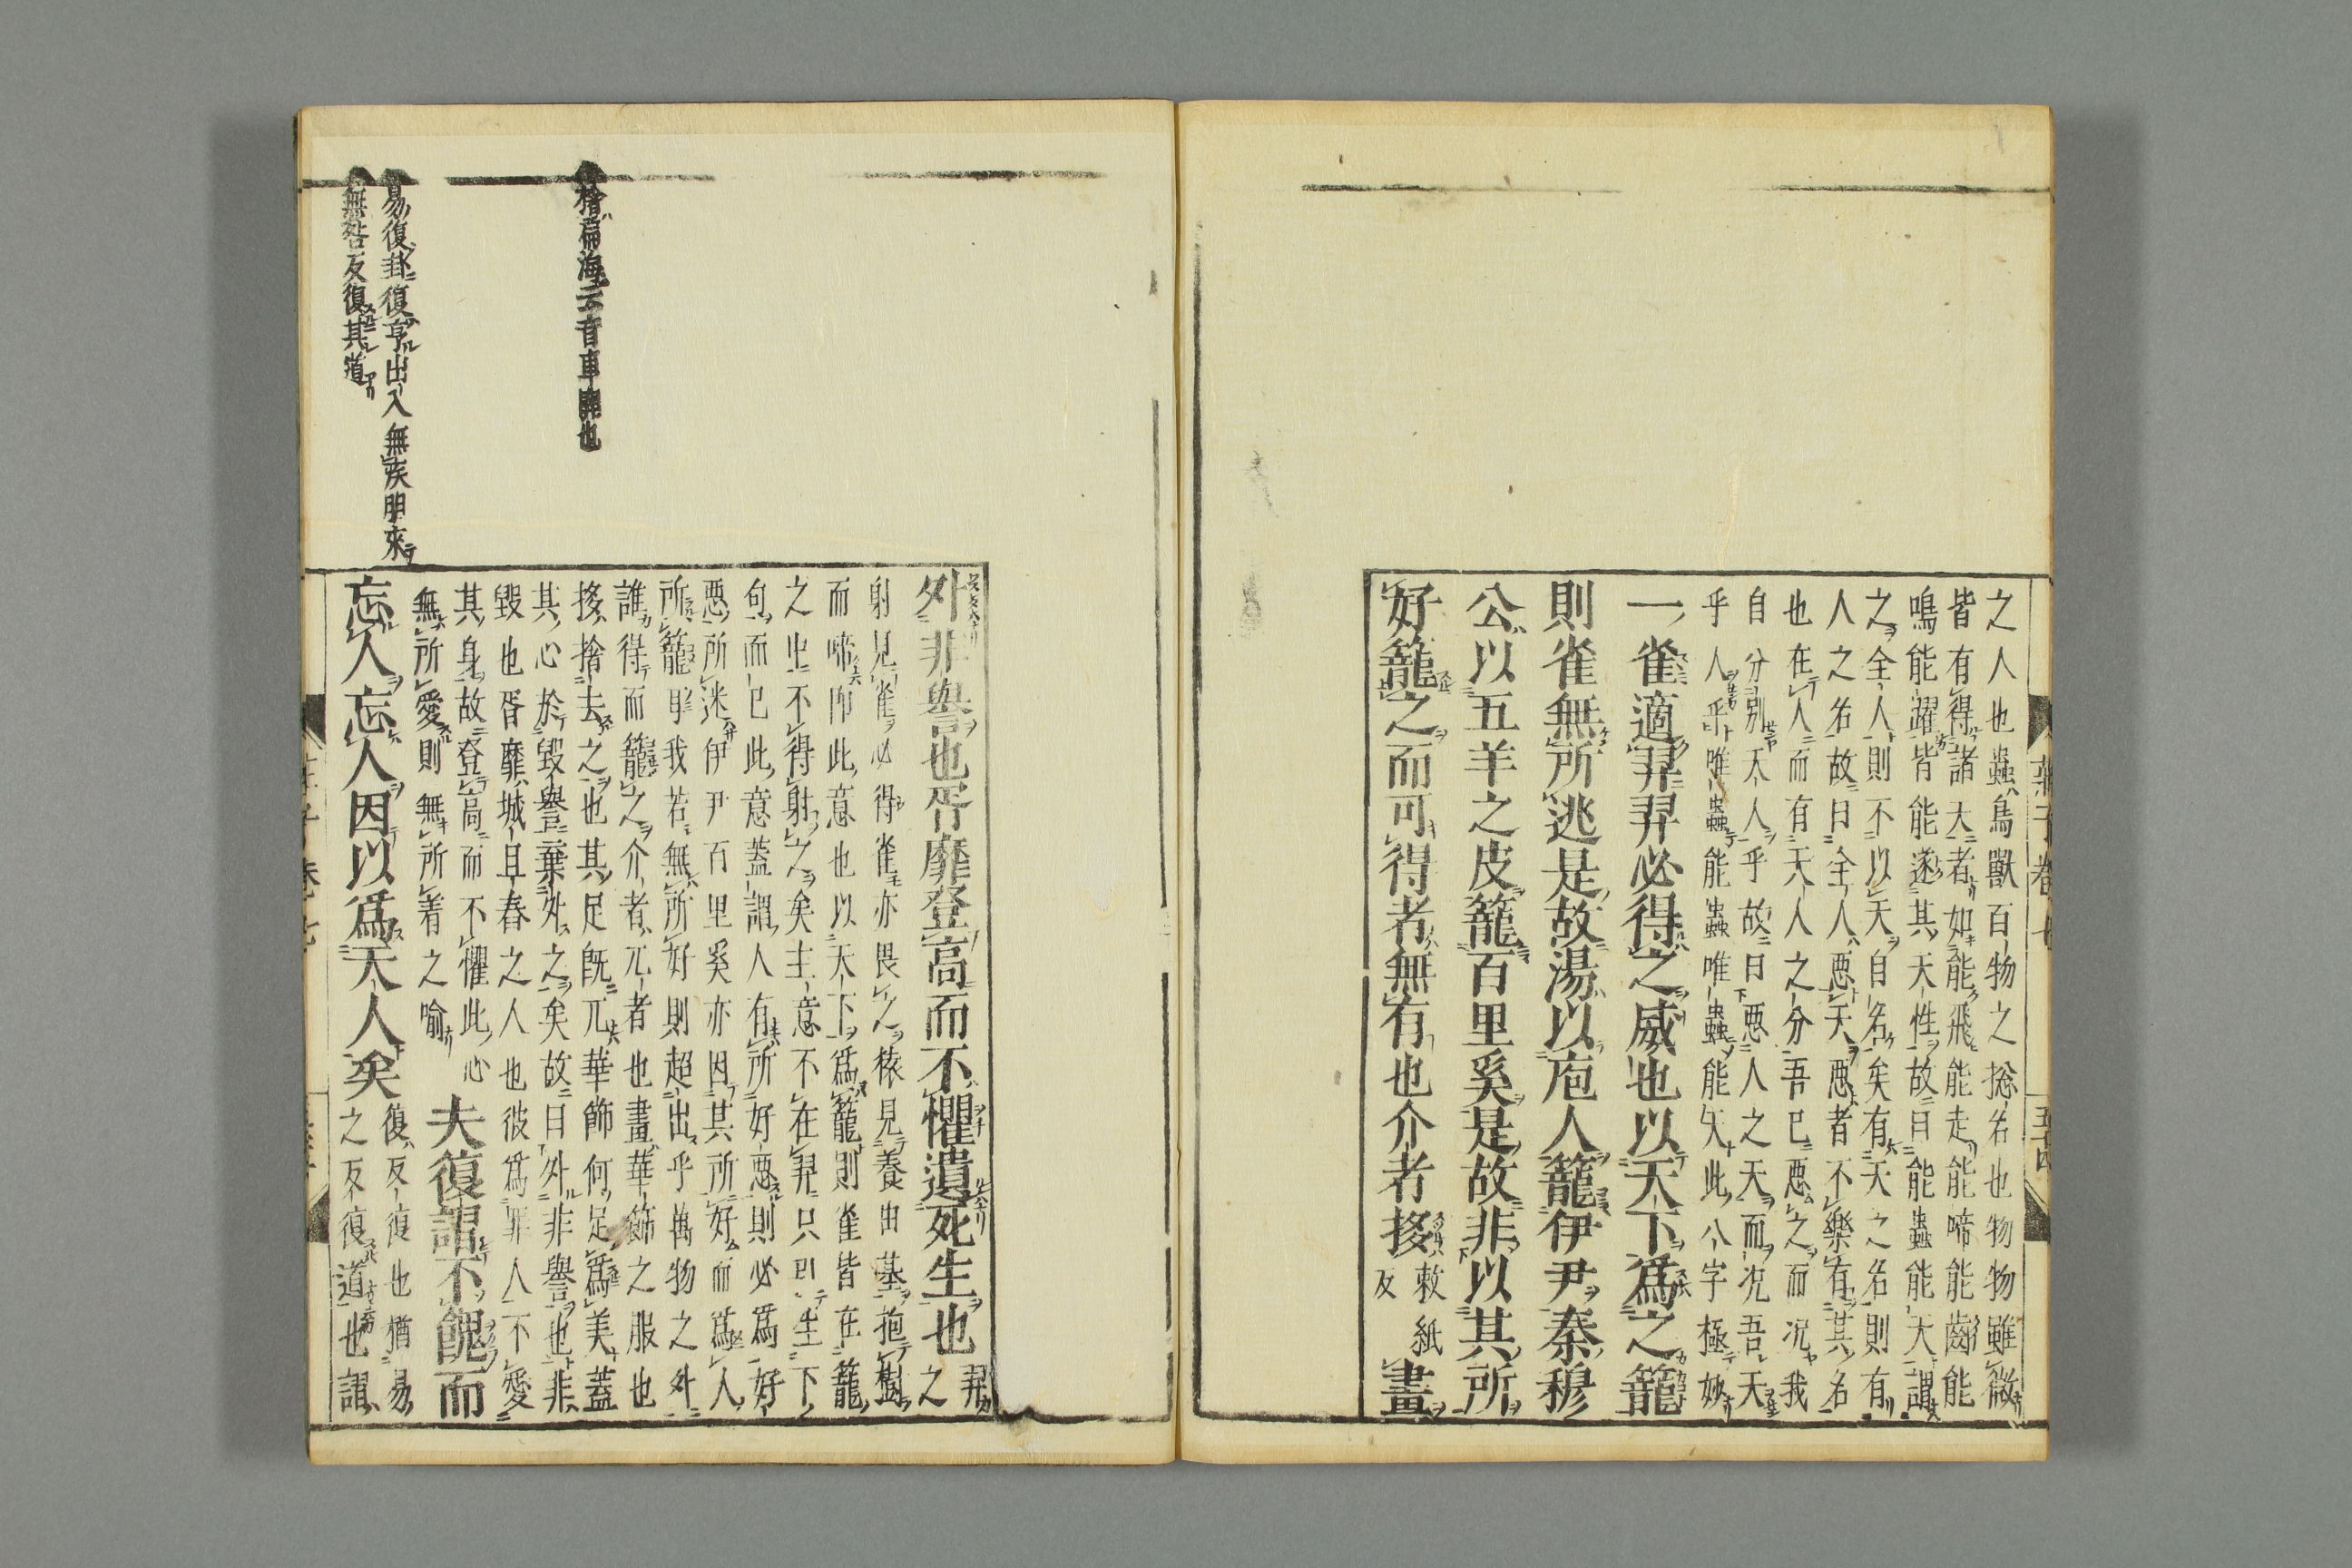 之人也蟲鳥獸百物之総名也物物雖微
皆有得諸大者如能飛能走能啼能齒能
鳴能躍皆能遂其天性故曰能蟲能天謂
之全人則不以天自名矣有天之名則有
人之名故曰全人惡天惡者不樂有其名
也在人而有天人之分吾已惡之而況我
自分別天人乎故曰惡人之天而況吾天
乎人乎唯蟲能蟲唯蟲能天此八字極妙
一雀適羿羿必得之威也以天下爲之籠
則雀無所逃是故湯以庖人籠伊尹秦穆
公以五羊之皮籠百里奚是故非以其所
好籠之而可得者無有也介者拸敕紙反畫
外非譽也胥靡登高而不懼遺死生也羿之
射見雀必得雀亦畏之猿見養由基抱樹
而啼卽此意也以天下爲籠則雀皆在籠
之中不得射之矣主意不在羿只引生下
句而已此意蓋謂人有所好惡則必爲好
惡所迷伊尹百里奚亦因其所好而爲人
所籠耳我若無所好則超出乎萬物之外
誰得而籠之介者兀者也畫華飾之服也
拸捨去之也其足既兀華飾何足爲美蓋
其心於毀譽棄外之矣故曰外非譽也非
毀也胥靡城旦舂之人也彼爲罪人不愛
其身故登高而不懼此心
無所愛則無所着之喻夫復謵不餽而
忘人忘人因以爲天人矣復反復也猶易
之反復道也謂
檜篇海云音車開也
易復卦復亨出入無疾朋來
無咎反復其道